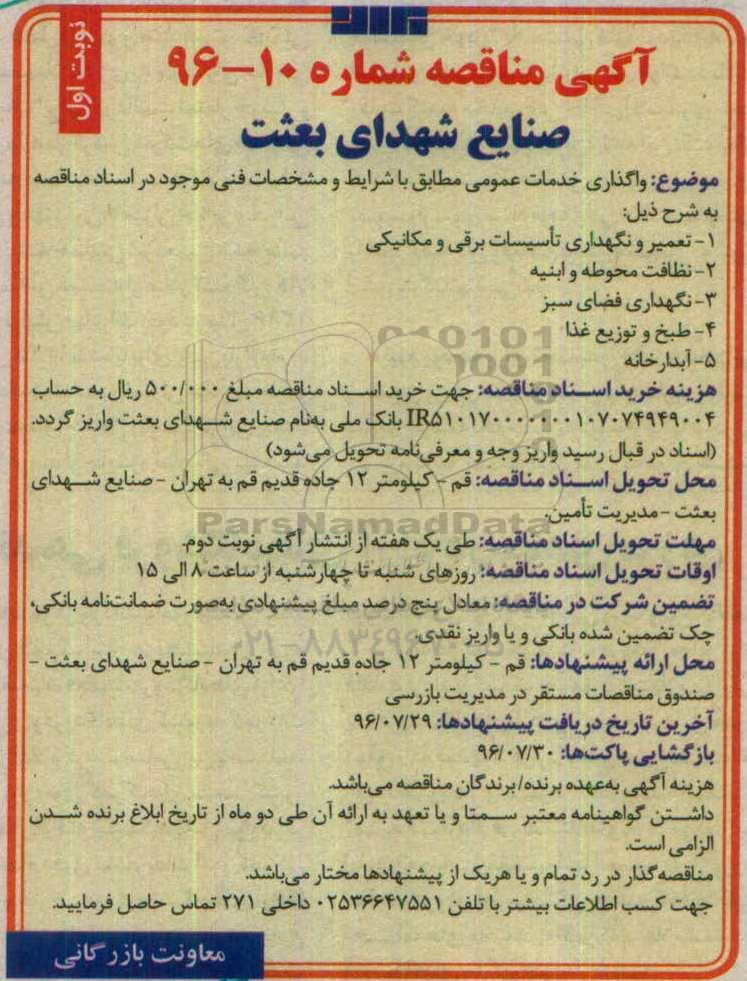 نوبت اول
آگهی مناقصه شماره ۱۰-۹۶
صنایع شهدای بعثت
موضوع: واگذاری خدمات عمومی مطابق با شرایط و مشخصات فنی موجود در اسناد مناقصه
به شرح ذیل:
۱- تعمیر و نگهداری تأسیسات برقی و مکانیکی
۲- نظافت محوطه و ابنیه
۳- نگهداری فضای سبز
۴- طبخ و توزیع غذا
۵- آبدارخانه
هزینه خرید اسناد مناقصه: جهت خرید اسناد مناقصه مبلغ ۵۰۰/۰۰۰ ریال به حساب
بانک ملی به‌نام صنایع شهدای بعثت واریز گردد.
(اسناد در قبال رسید واریز وجه و معرفی‌نامه تحویل می‌شود)
محل تحویل اسناد مناقصه: قم - کیلومتر ۱۲ جاده قدیم قم به تهران - صنایع شهدای
بعثت - مدیریت تأمین.
ParsNamadData
مهلت تحویل اسناد مناقصه: طی یک هفته از انتشار آگهی نوبت دوم.
اوقات تحویل اسناد مناقصه: روزهای شنبه تا چهارشنبه از ساعت ۸ الی ۱۵
تضمین شرکت در مناقصه: معادل پنج درصد مبلغ پیشنهادی به‌صورت ضمانت‌نامه بانکی،
چک تضمین شده بانکی و یا واریز نقدی.
محل ارائه پیشنهادها: قم - کیلومتر ۱۲ جاده قدیم قم به تهران - صنایع شهدای بعثت -
صندوق مناقصات مستقر در مدیریت بازرسی
آخرین تاریخ دریافت پیشنهادها: ۹۶/۰۷/۲۹
بازگشایی پاکت‌ها: ۹۶/۰۷/۳۰
هزینه آگهی به‌عهده برنده/برندگان مناقصه می‌باشد.
داشتن گواهینامه معتبر سمتا و یا تعهد به ارائه آن طی دو ماه از تاریخ ابلاغ برنده شدن
الزامی است.
مناقصه‌گذار در رد تمام و یا هریک از پیشنهادها مختار می‌باشد.
جهت کسب اطلاعات بیشتر با تلفن ۰۲۵۳۶۶۴۷۵۵۱ داخلی ۲۷۱ تماس حاصل فرمایید.
معاونت بازرگانی